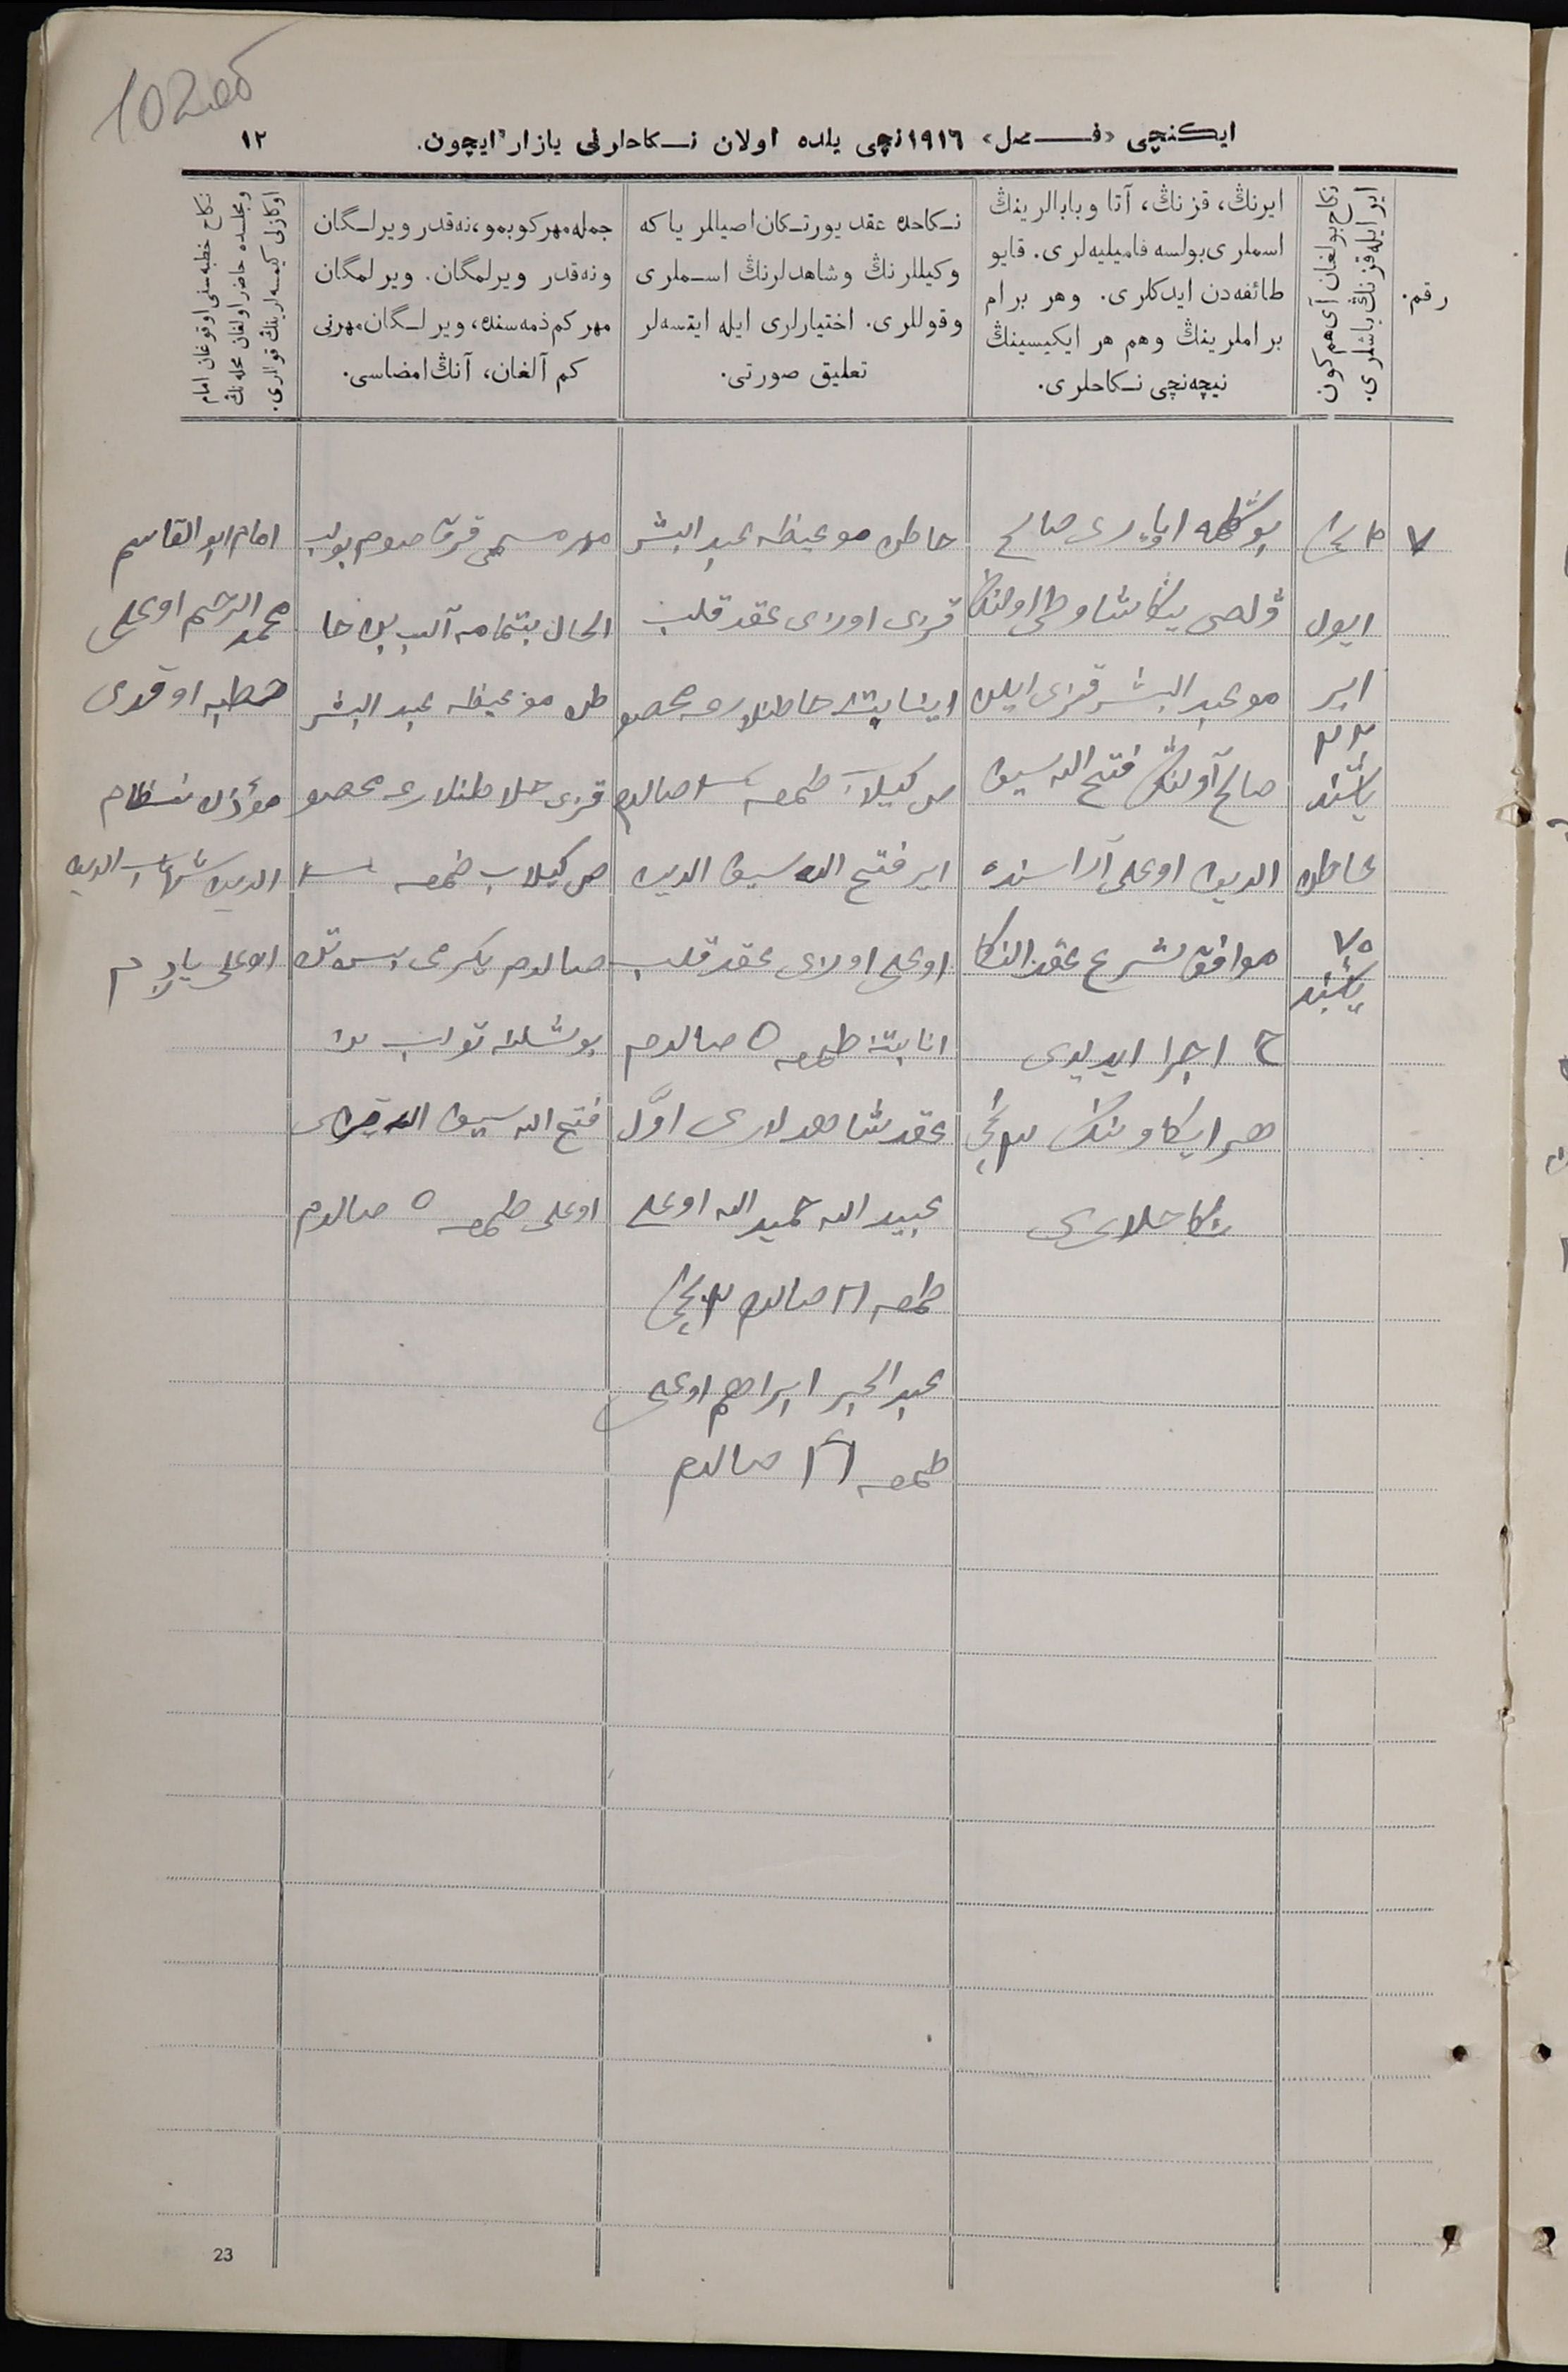 102об
ایكنچی «فـصل» ١٩١٦نچی یلده اولان نـكاحلرنی یازار ایچون.
١٢
رقم.
ایر ایله قزنڭ یاشلری.
نكاح بولغان آی هم كون
ایرنڭ، قزنڭ، آتا وبابالرینڭ
اسملری بولسه فامیلیه‌لری. قایو
طائفه‌دن ایدكلری. وهر برام
براملرینڭ وهم هر ایكیسینڭ
نیچه‌نچی نـكاحلری.
نـكاحده عقد یورتـكان اصیللر یا كه
وكیللرنڭ وشاهدلرنڭ اسـملری
وقوللری. اختیارلری ایله ایتسه‌لر
تعلیق صورتی.
جمله مهر كوبمو، نه قدر ویرلـگان
ونه قدر ویرلمگان. ویرلمگان
مهر كم ذمه سنده، ویرلـگان مهرنی
كم آلغان، آنڭ امضاسی.
نكاح خطبه سنی اوقوغان امام
ومجلسده حاضر اولغان محله نڭ
اوكازلی كیمسه لرینڭ قوللری.
٧
ایول
ایر
یاشنده
خاطن
٧٥
یاشنده
صالح
موعبد البشر قزی ایلن
صالح آولنڭ فتح الله سیف
الدین اوغلی آراسنده
موافق شرع عقد النكا
ح اجرا ایدیلدی
هر ایكاوینڭ ٢نچی
نكاحلاری
خاطن موعیظه عبد البشر
قزی اوزی عقد قلب
اینابتنه خاطنلارغه مخصو
ص كیلا طمغه صالدم
ایر فتح الله سیف الدین
اوغلی اوزی عقد قلب
انابته طمغه صالدم
عقد شاهدلاری اوّل
عبید الله حمید الله اوغلی
طمغه صالدم ٢نچی
عبد الخبیر ابراهیم اوغلی
طمغه صالدم
مهر مسمی قرق صوم بولب
الحال بتمامه آلب بن خا
طن موعیظه عبد البشر
قزی خاطنلارغه مخصو
ص كیلا طمغه
صالدم یكرمی بیش تك
بورشلنه تورب من
فتح الله سیف الدین
اوغلی طمغه صالدم
امام ابو القاسم
محمد الرحیم اوغلی
خطبه اوقدی
مؤذن نظام
الدین شهاب الدین
اوغلی باردم
23